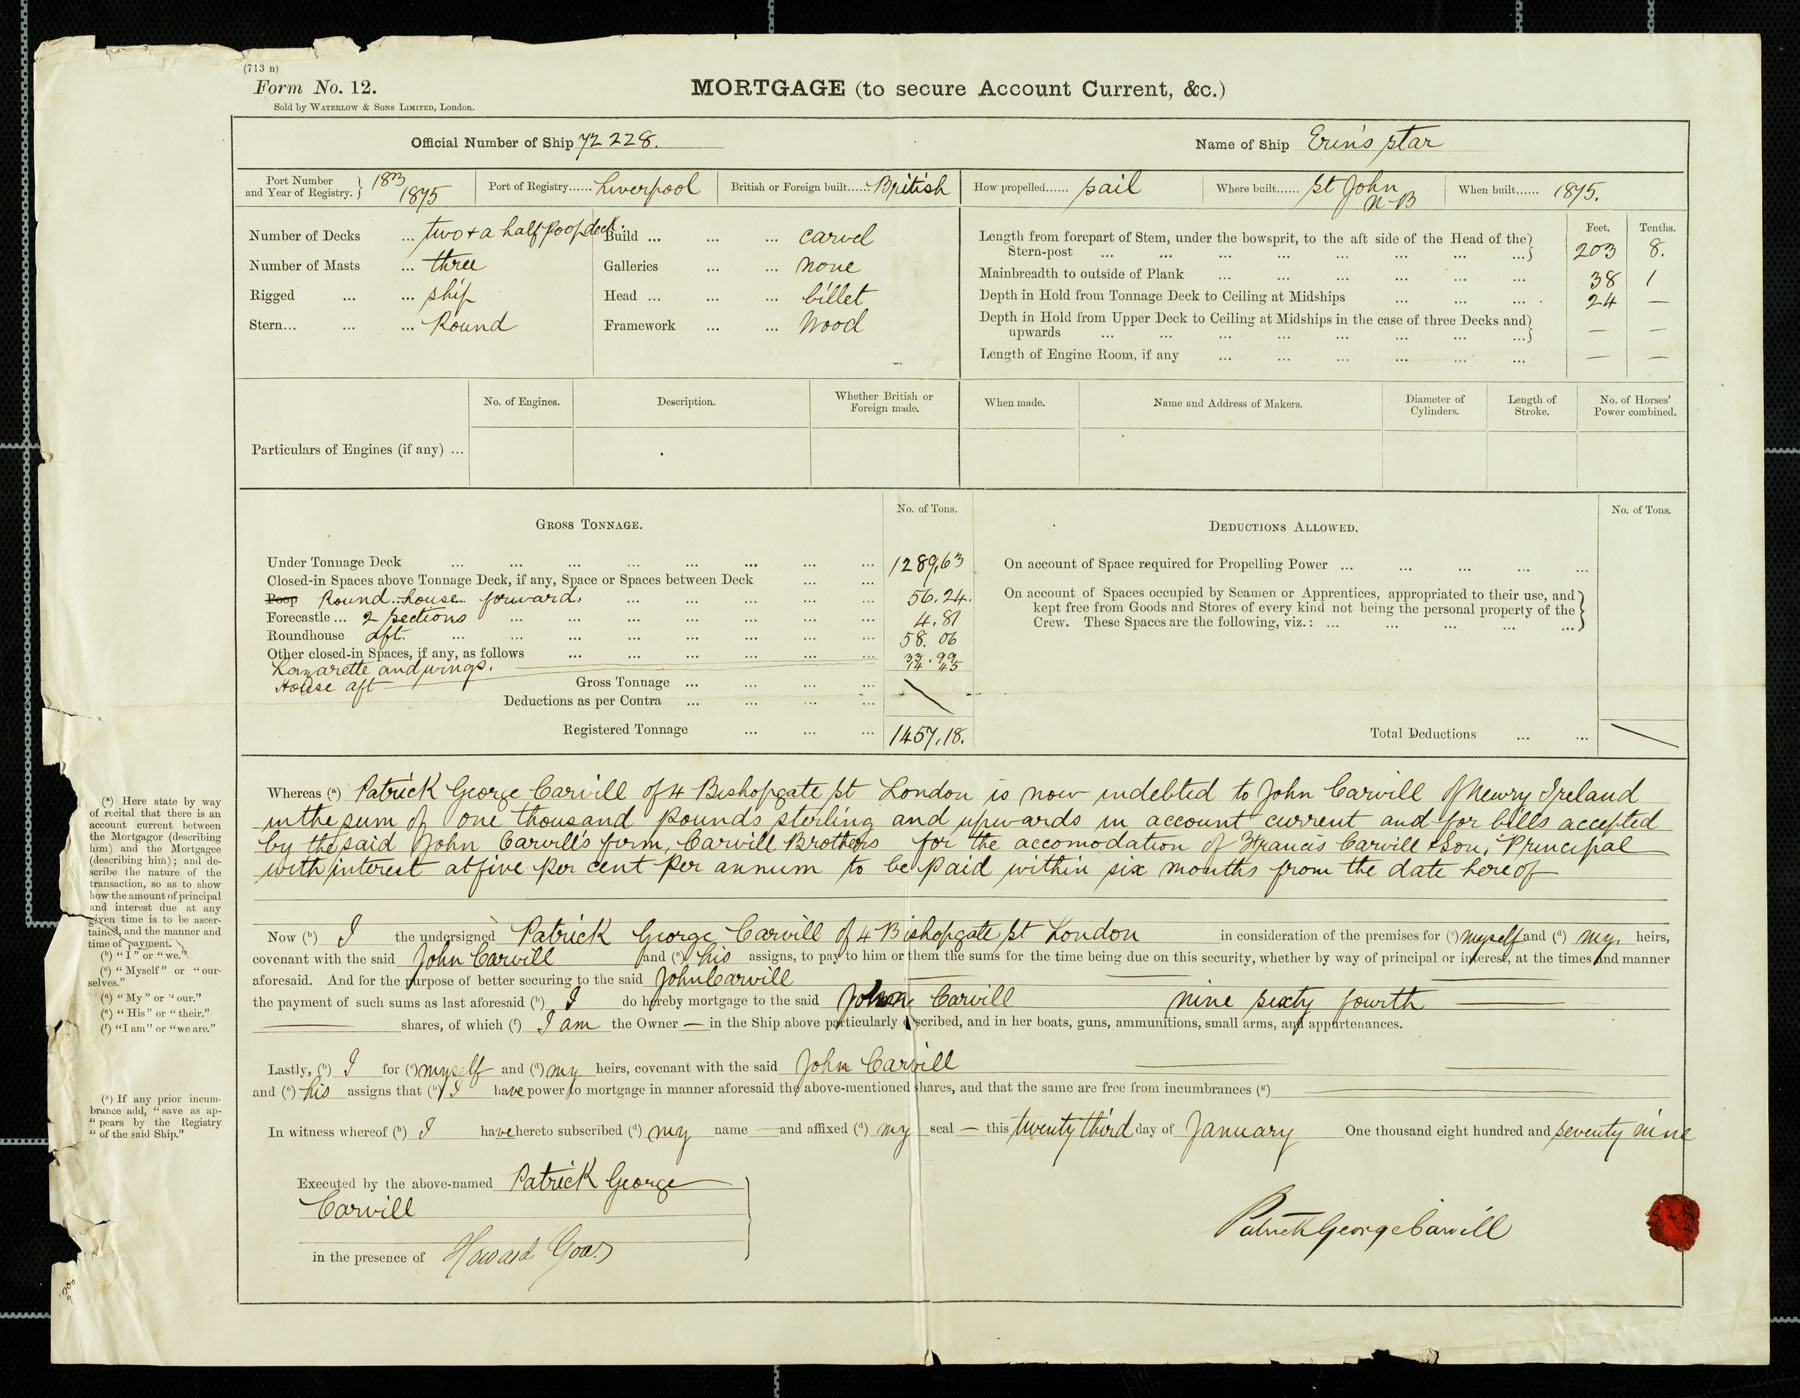 (713 B)
Form No. 12.
Sold by WATERLOW & SONS LIMITED, London.
MORTGAGE (to secure Account Current, &c.)
Official Number of Ship 72 228.
Name of Ship Erin's Star
Port Number and Year of Registry. } 183 1875
Port of Registry...... Liverpool
British or Foreign built..... British
How propelled...... Sail
Where built...... St John N-B
When built...... 1875.
Number of Decks ... two + a half poop deck.
Number of Masts ... three
Rigged ... ... ship
Stern... ... ... Round
Build ... ... ... carvel
Galleries ... ... none
Head ... ... ... billet
Framework ... ... Wood
Feet. Tenths.
Length from forepart of Stem, under the bowsprit, to the aft side of the Head of the
Stern-post ... ... ... ... ... ... ... ...} 203 8.
Mainbreadth to outside of Plank ... ... ... ... ... ... 38 1
Depth in Hold from Tonnage Deck to Ceiling at Midships ... ... ... 24 —
Depth in Hold from Upper Deck to Ceiling at Midships in the case of three Decks and
upwards ... ... ... ... ... ... ... ...} — —
Length of Engine Room, if any ... ... ... ... ... ... — —
Particulars of Engines (if any) ...
No. of Engines.
Description.
Whether British or Foreign made.
When made.
Name and Address of Makers.
Diameter of Cylinders.
Length of Stroke.
No. of Horses' Power combined.
GROSS TONNAGE.
No. of Tons.
Under Tonnage Deck ... ... ... ... ... ... ... ... 1289,63
Closed-in Spaces above Tonnage Deck, if any, Space or Spaces between Deck ... ...
Poop Round house forward. ... ... ... ... ... 56.24.
Forecastle ... 2 sections ... ... ... ... ... ... ... 4.81
Roundhouse aft. ... ... ... ... ... ... ... ... 58.06
Other closed-in Spaces, if any, as follows ... ... ... ... ... ... 33.99
Lazarette and wings. 14 45
House aft
Gross Tonnage ... ... ... ...
Deductions as per Contra ... ... ... ...
Registered Tonnage ... ... ... 1457.18.
DEDUCTIONS ALLOWED.
No. of Tons.
On account of Space required for Propelling Power ... ... ... ... ...
On account of Spaces occupied by Seamen or Apprentices, appropriated to their use, and
kept free from Goods and Stores of every kind not being the personal property of the
Crew. These Spaces are the following, viz.: ... ... ... ... ...}
Total Deductions ... ...
Whereas (a) Patrick George Carvill of 4 Bishopgate St London is now indebted to John Carvill of Newry Ireland
in the sum of one thousand pounds sterling and upwards in account current and for bills accepted
by the said John Carvill's firm, Carvill Brothers for the accomodation of Francis Carvill & Son, Principal
with interest at five per cent per annum to be paid within six months from the date hereof
Now (b) I the undersigned Patrick George Carvill of 4 Bishopgate St London in consideration of the premises for (c) myself and (d) my heirs,
covenant with the said John Carvill and (e) his assigns, to pay to him or them the sums for the time being due on this security, whether by way of principal or interest, at the times and manner
aforesaid. And for the purpose of better securing to the said John Carvill
the payment of such sums as last aforesaid (b) I do hereby mortgage to the said John Carvill nine sixty fourth
shares, of which (f) I am the Owner — in the Ship above particularly described, and in her boats, guns, ammunitions, small arms, and appurtenances.
Lastly, (b) I for (c) myself and (d) my heirs, covenant with the said John Carvill
and (e) his assigns that (b) I have power to mortgage in manner aforesaid the above-mentioned shares, and that the same are free from incumbrances (g)
In witness whereof (b) I have hereto subscribed (d) my name — and affixed (d) my seal — this twenty third day of January One thousand eight hundred and seventy nine
Executed by the above-named Patrick George
Carvill
in the presence of Howard
Patrick George Carvill
(a) Here state by way
of recital that there is an
account current between
the Mortgagor (describing
him) and the Mortgagee
(describing him); and de-
scribe the nature of the
transaction, so as to show
how the amount of principal
and interest due at any
given time is to be ascer-
tained, and the manner and
time of payment.
(b) "I" or "we."
(c) "Myself" or "our-
selves."
(d) "My" or "our."
(e) "His" or "their."
(f) "I am" or "we are."
(g) If any prior incum-
brance add, "save as ap-
"pears by the Registry
"of the said Ship."